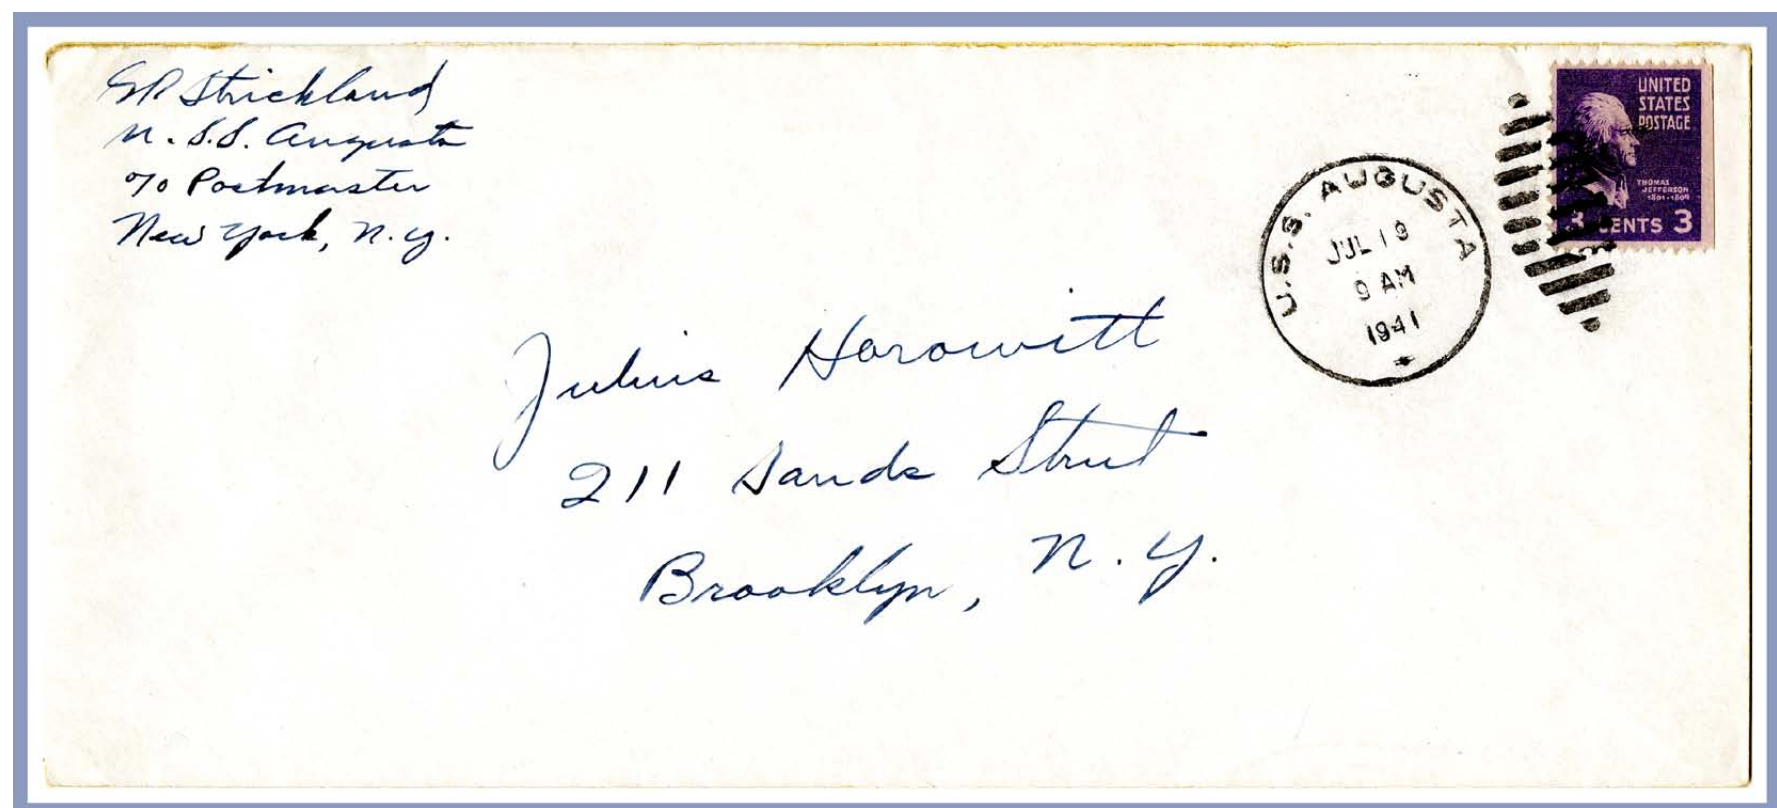 GP Strickland
U.S.S. Augusta
c/o Postmaster
New York, N.Y.
U.S.S. AUGUSTA
JUL 19
9 AM
1941
UNITED
STATES
POSTAGE
THOMAS
JEFFERSON
1801-1809
3 CENTS 3
Julius Horowitt
211 Sands Street
Brooklyn, N.Y.